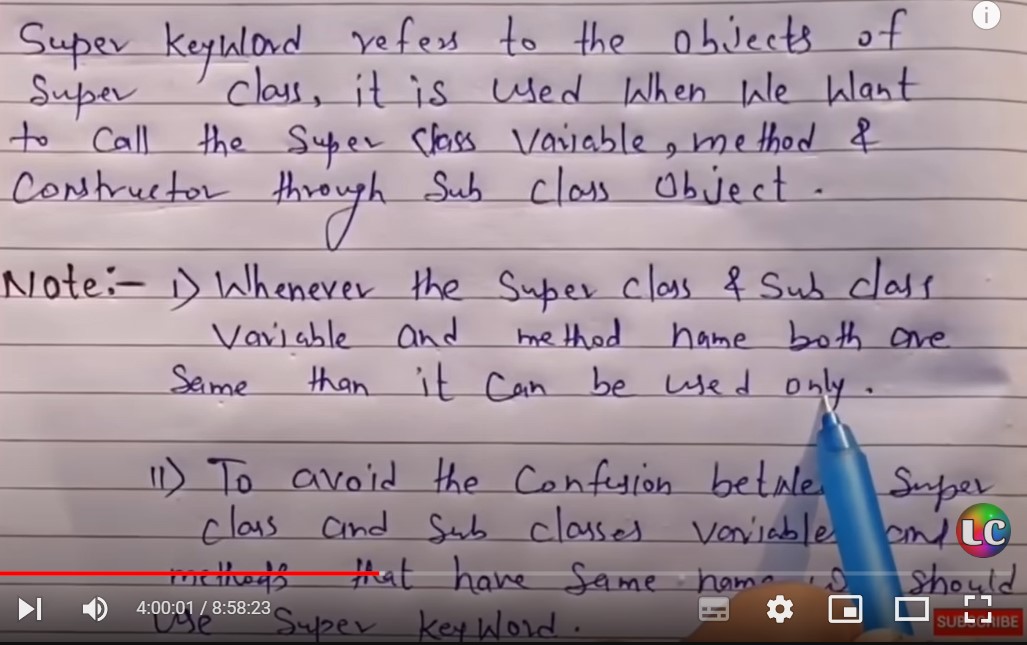 Super keyword refers to the objects of
Super class, it is used When We Want
to Call the Super class Variable, method &
Constructor through Sub class Object.
Note:- i) Whenever the Super class & Sub class
Variable and method name both are
Same than it Can be used only.
ii) To avoid the Confusion Super
class and Sub classes variable and
methods that have Same should
Use Super keyword.
LC
4:00:01 / 8:58:23
SUBSCRIBE